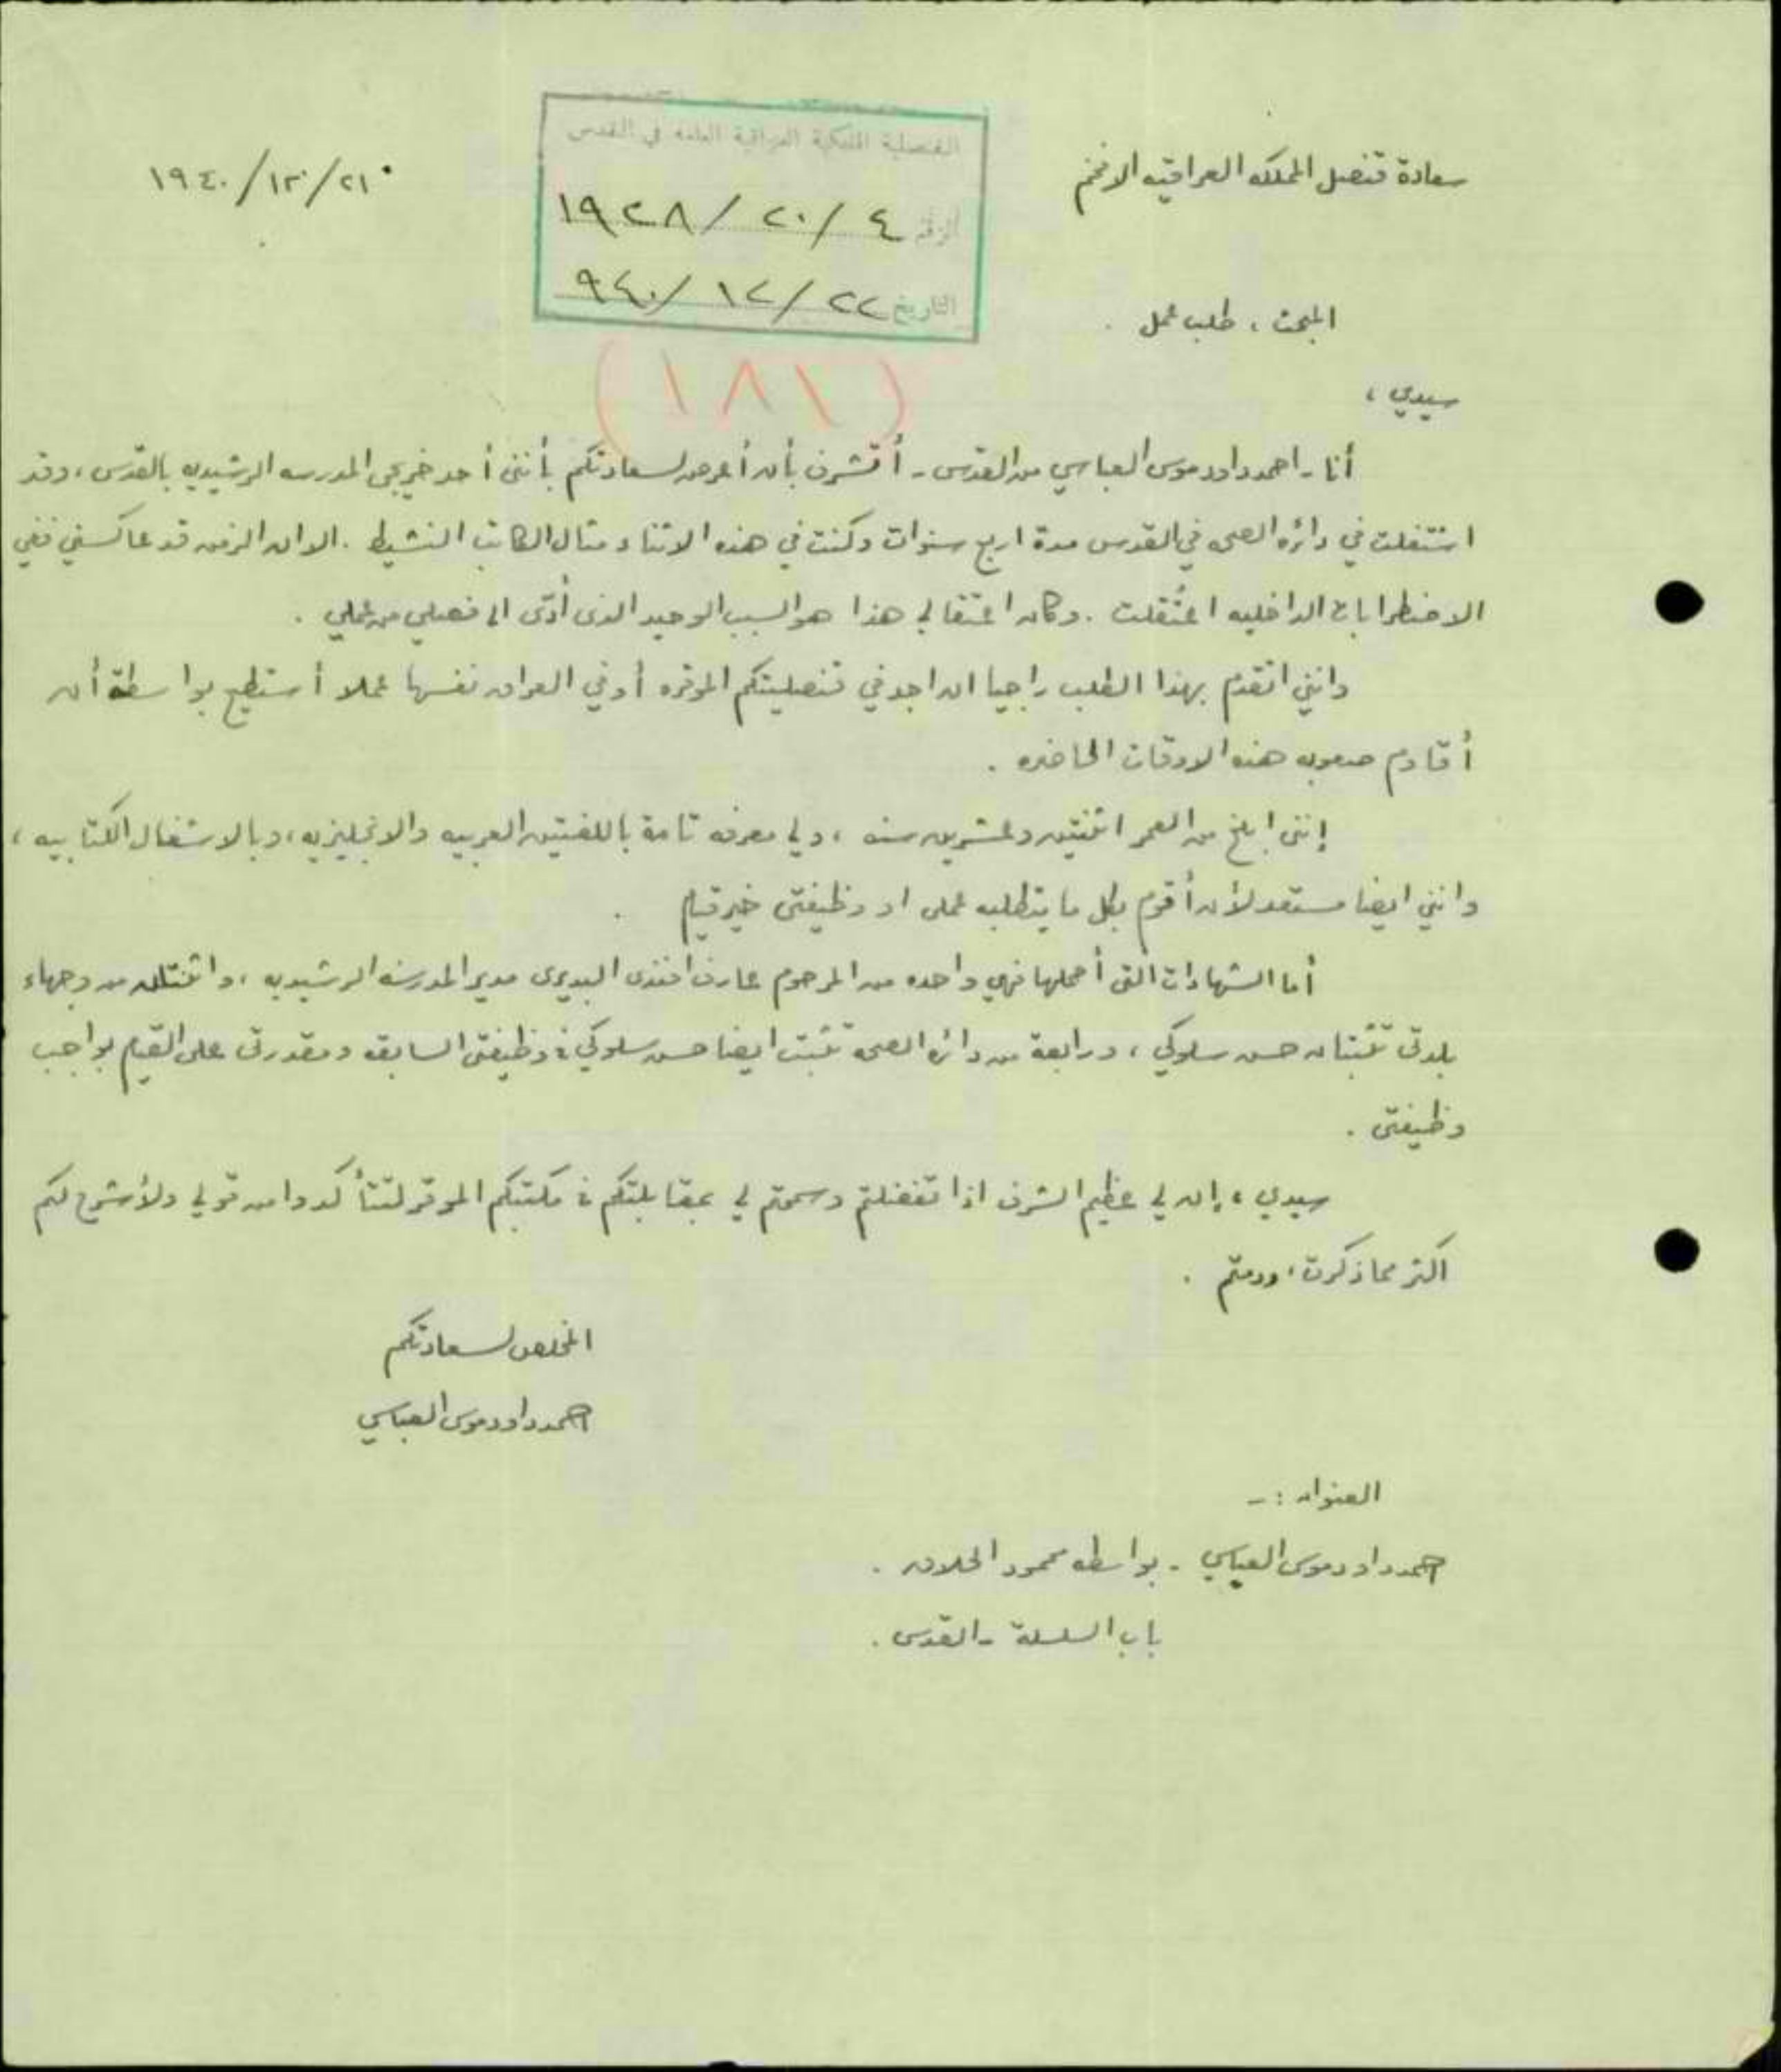 القنصلية الملكية العراقية العامة في القدس
سعادة قنصل المملكه العراقيه الافخم
٢١/١٢/١٩٤٠
الرقم ٤/٢٠/١٩٢٨
التاريخ ٢٢/١٢/٩٤٠
المبحث ، طلب عمل .
(١٨١)
سيدي ،
أنا - احمد داود موسى العباسي من القدس - أتشرف بأن أعرض لسعادتكم بأنني أحد خريجي المدرسه الرشيديه بالقدس ، وقد
اشتغلت في دائره الصحه في القدس مدة اربع سنوات وكنت في هذه الاثناء مثال الكاتب النشيط . الا ان الزمن قد عاكسني ففي
الاضطرابات الداخليه اعتُقلت . وكان اعتقالي هذا هو السبب الوحيد الذي أدّى الى فصلي من عملي .
وانني اتقدم بهذا الطلب راجيا ان اجد في قنصليتكم الموقره أو في العراق نفسها عملا أستطيع بواسطته أن
أقاوم صعوبه هذه الاوقات الحاضره .
إنني ابلغ من العمر اثنتين وعشرين سنه ، ولي معرفه تامة باللغتين العربيه والانجليزيه ، وبالاشغال الكتابيه ،
وانني ايضا مستعد لأن أقوم بكل ما يتطلبه عملي او وظيفتي خير قيام .
أما الشهادات التي أحملها فهي واحده من المرحوم عارف افندي البديري مدير المدرسه الرشيديه ، واثنتان من وجهاء
بلدتي تثبتان حسن سلوكي ، ورابعة من دائره الصحه تثبت ايضا حسن سلوكي في وظيفتي السابقه ومقدرتي على القيام بواجب
وظيفتي .
سيدي ، إن لي عظيم الشرف اذا تفضلتم وسمحتم لي بمقابلتكم في مكتبكم الموقر لتتأكدوا من قولي ولأشرح لكم
اكثر مما ذكرت ، ودمتم .
المخلص لسعادتكم
احمد داود موسى العباسي
العنوان :-
احمد داود موسى العباسي - بواسطه محمود الحلاق .
باب السلسلة - القدس .